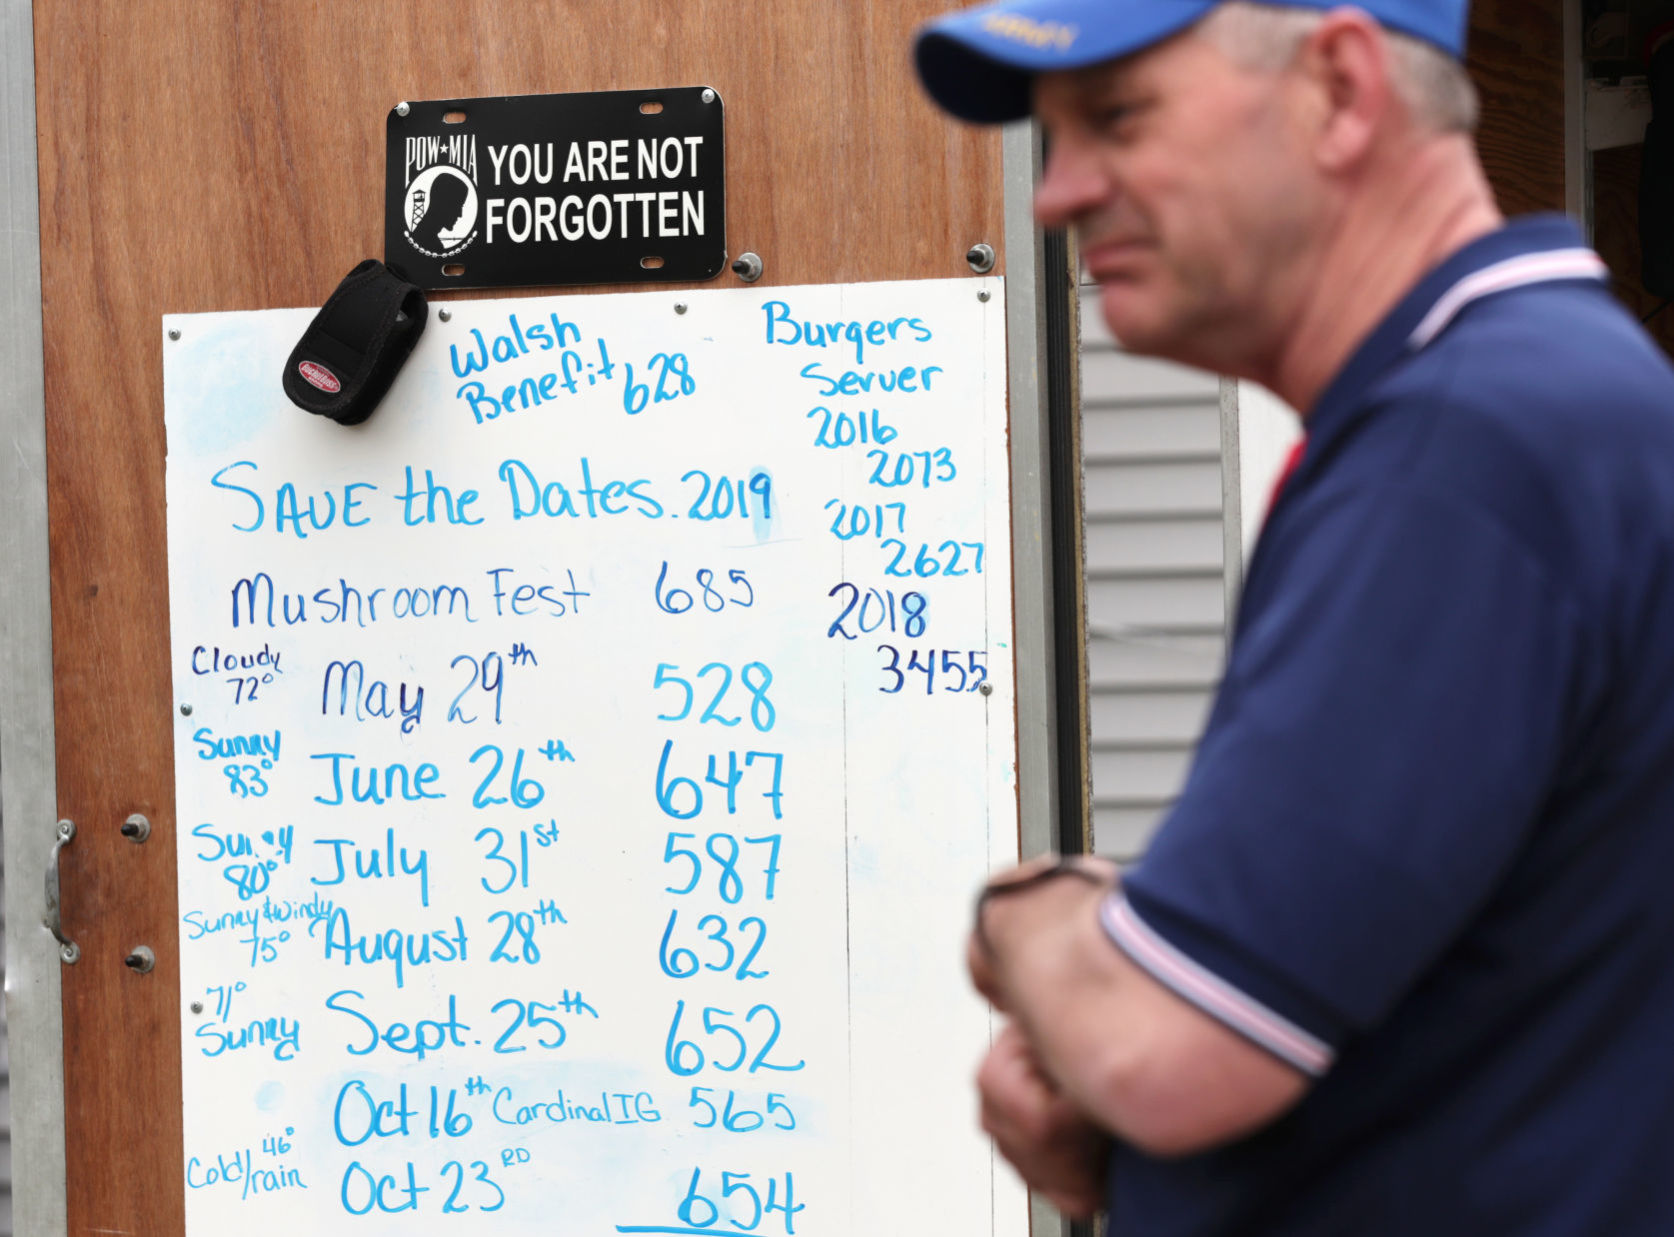 POW★MIA
YOU ARE NOT
FORGOTTEN
Walsh
Benefit 628
Burgers
Server
2016
2073
2017
2627
2018
3455
SAVE the Dates. 2019
Mushroom Fest 685
Cloudy
72° May 29th 528
Sunny
83° June 26th 647
80° July 31st 587
Sunny & Windy
75° August 28th 632
71°
Sunny Sept. 25th 652
Oct 16th Cardinal IG 565
46°
Cold/rain Oct 23RD 654